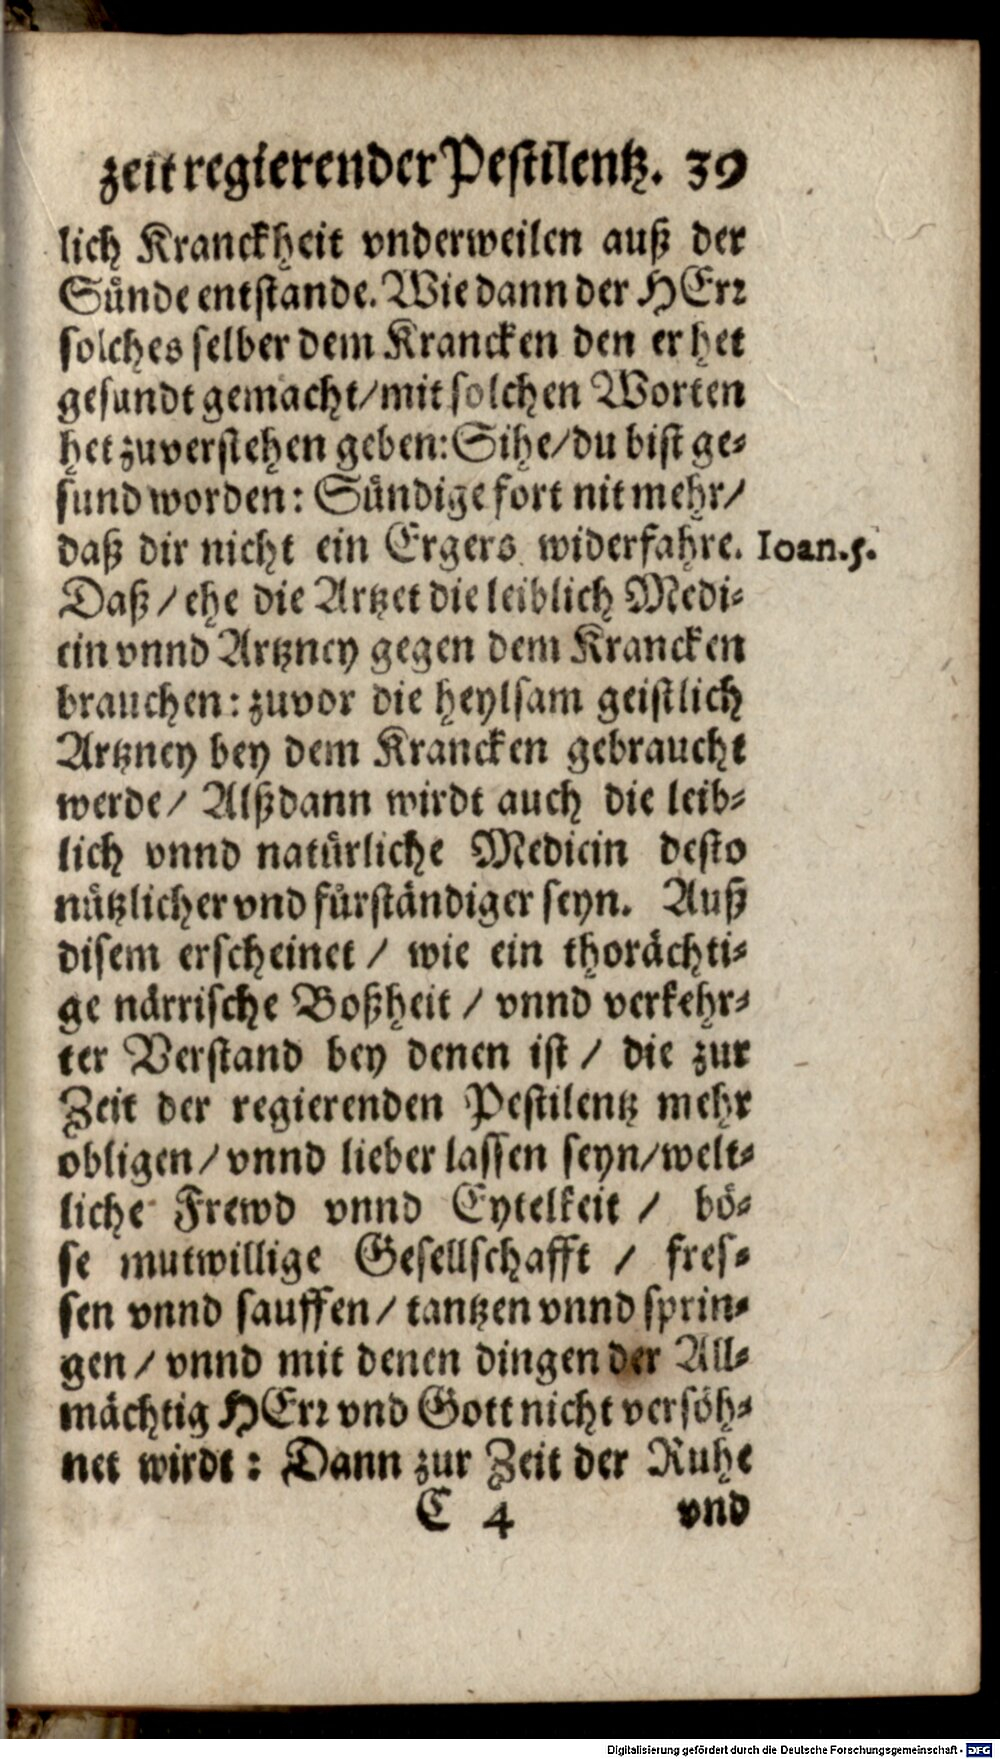 zeit regierender Pestilentz. 39
lich Kranckheit vnderweilen auß der
Sünde entstande. Wie dann der HErr
solches selber dem Krancken den er het
gesundt gemacht/mit solchen Worten
het zuverstehen geben: Sihe/du bist ge-
sund worden: Sündige fort nit mehr/
daß dir nicht ein Ergers widerfahre. Ioan.5.
Daß/ehe die Artzet die leiblich Medi-
cin vnnd Artzney gegen dem Krancken
brauchen: zuvor die heylsam geistlich
Artzney bey dem Krancken gebraucht
werde/ Alßdann wirdt auch die leib-
lich vnnd natürliche Medicin desto
nützlicher vnd fürständiger seyn. Auß
disem erscheinet / wie ein thorächti-
ge närrische Boßheit / vnnd verkehr-
ter Verstand bey denen ist / die zur
Zeit der regierenden Pestilentz mehr
obligen/vnnd lieber lassen seyn/welt-
liche Frewd vnnd Eytelkeit / bö-
se mutwillige Gesellschafft / fres-
sen vnnd sauffen/tantzen vnnd sprin-
gen/vnnd mit denen dingen der All-
mächtig HErr vnd Gott nicht versöh-
net wirdt: Dann zur Zeit der Ruhe
C 4 vnd
Digitalisierung gefördert durch die Deutsche Forschungsgemeinschaft - DFG